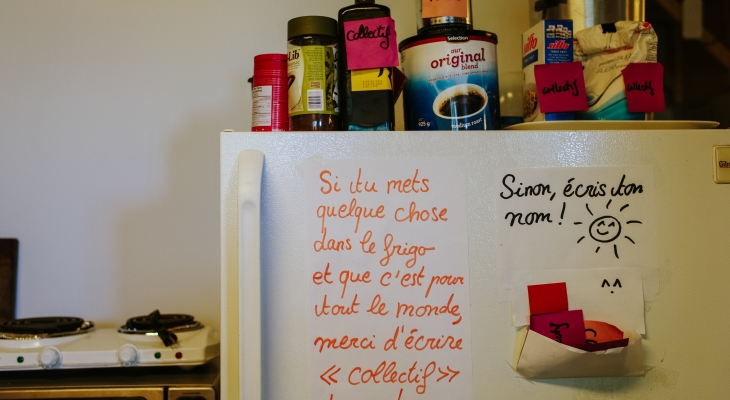 Collectif
Selection
our
original
blend
medium roast
925 g
collectif
collectif
Si tu mets
quelque chose
dans le frigo
et que c'est pour
tout le monde,
merci d'écrire
« Collectif »
Sinon, écris ton
nom !